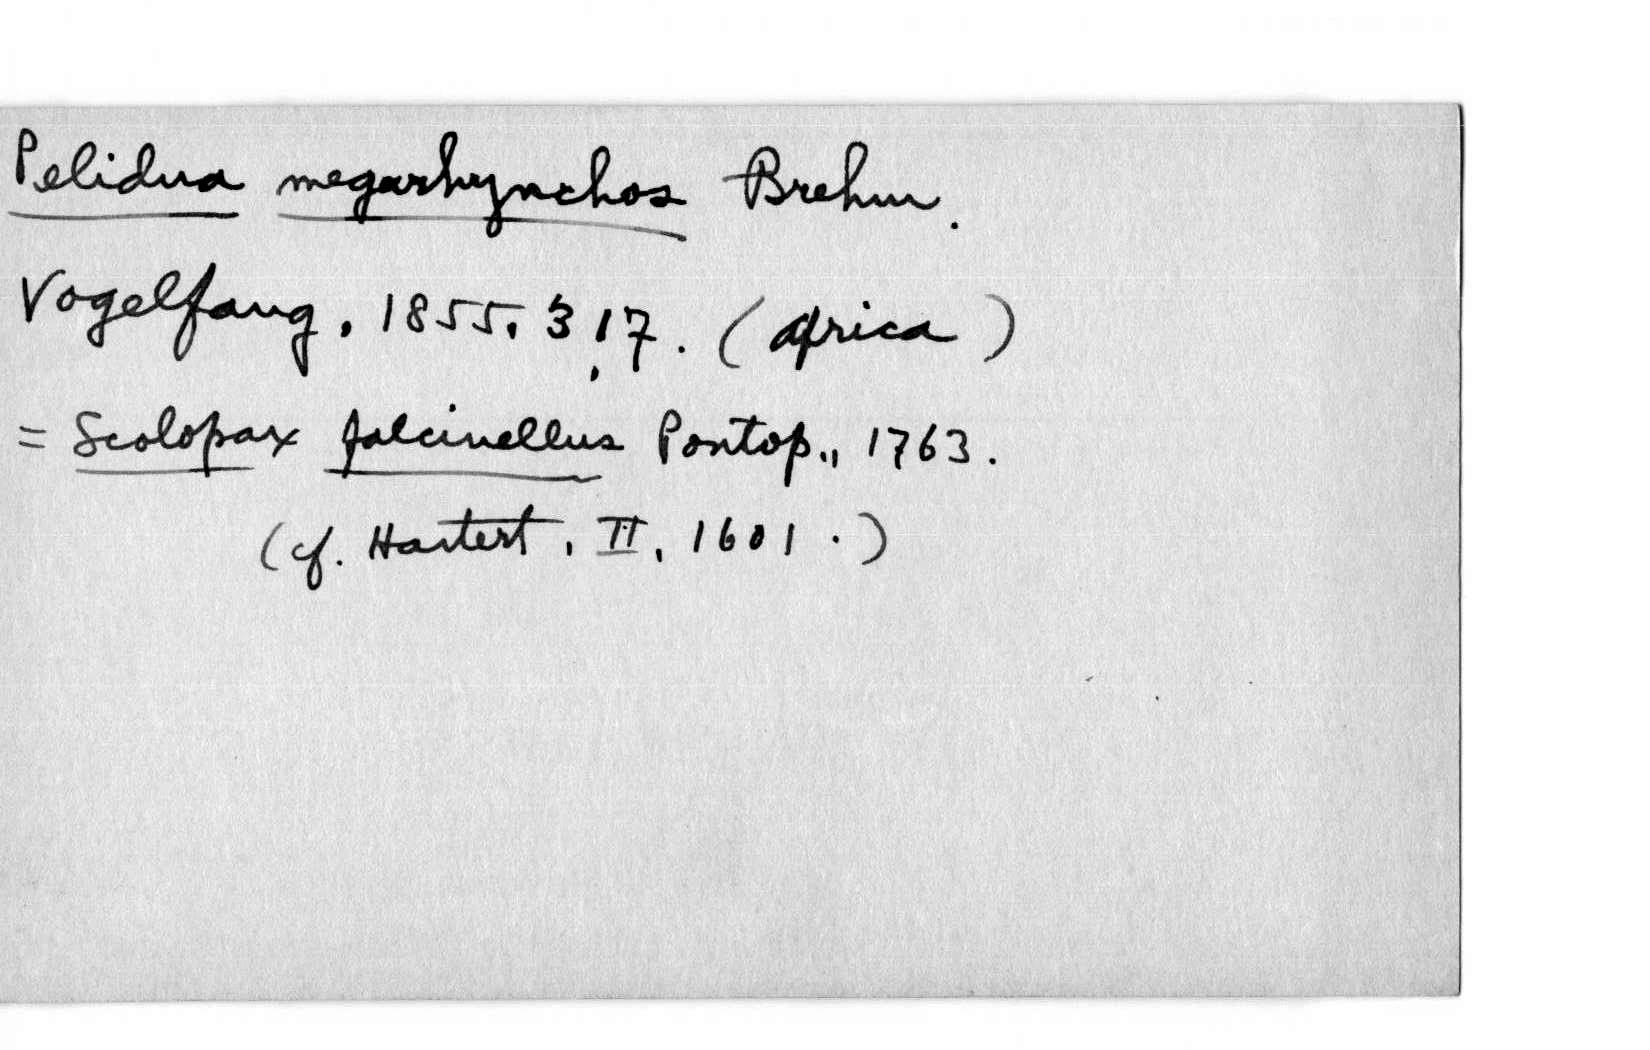 Pelidna megarhynchos Brehm.
Vogelfang, 1855, 317. (Africa)
= Scolopax falcinellus Pontop., 1763.
(cf. Hartert, II, 1601.)